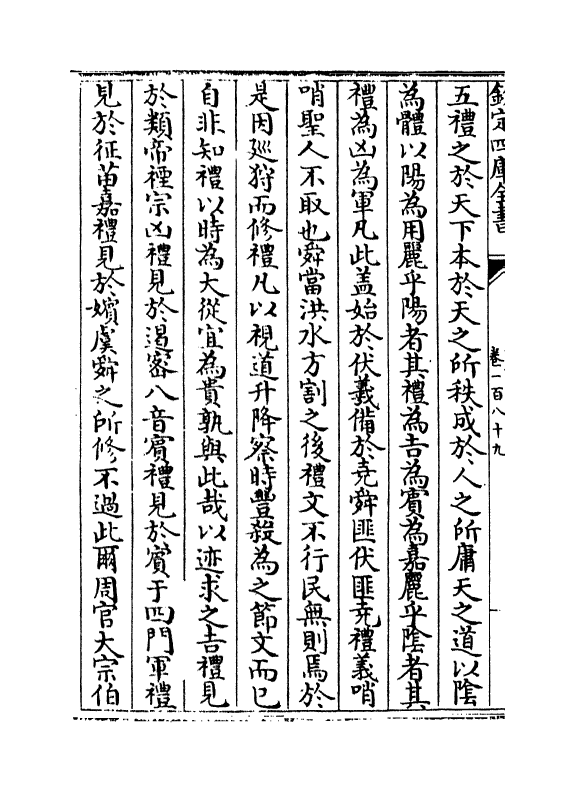 欽定四庫全書
卷一百八十九
五禮之於天下本於天之所秩成於人之所庸天之道以陰
為體以陽為用麗乎陽者其禮為吉為賓為嘉麗乎陰者其
禮為凶為軍凡此盖始於伏羲備於堯舜匪伏匪堯禮義哨
哨聖人不取也舜當洪水方割之後禮文不行民無則焉於
是因巡狩而修禮凡以視道升降察時豐殺為之節文而已
自非知禮以時為大從宜為貴孰與此哉以迹求之吉禮見
於類帝禋宗凶禮見於遏密八音賓禮見於賓于四門軍禮
見於征苗嘉禮見於嬪虞舜之所修不過此爾周官大宗伯